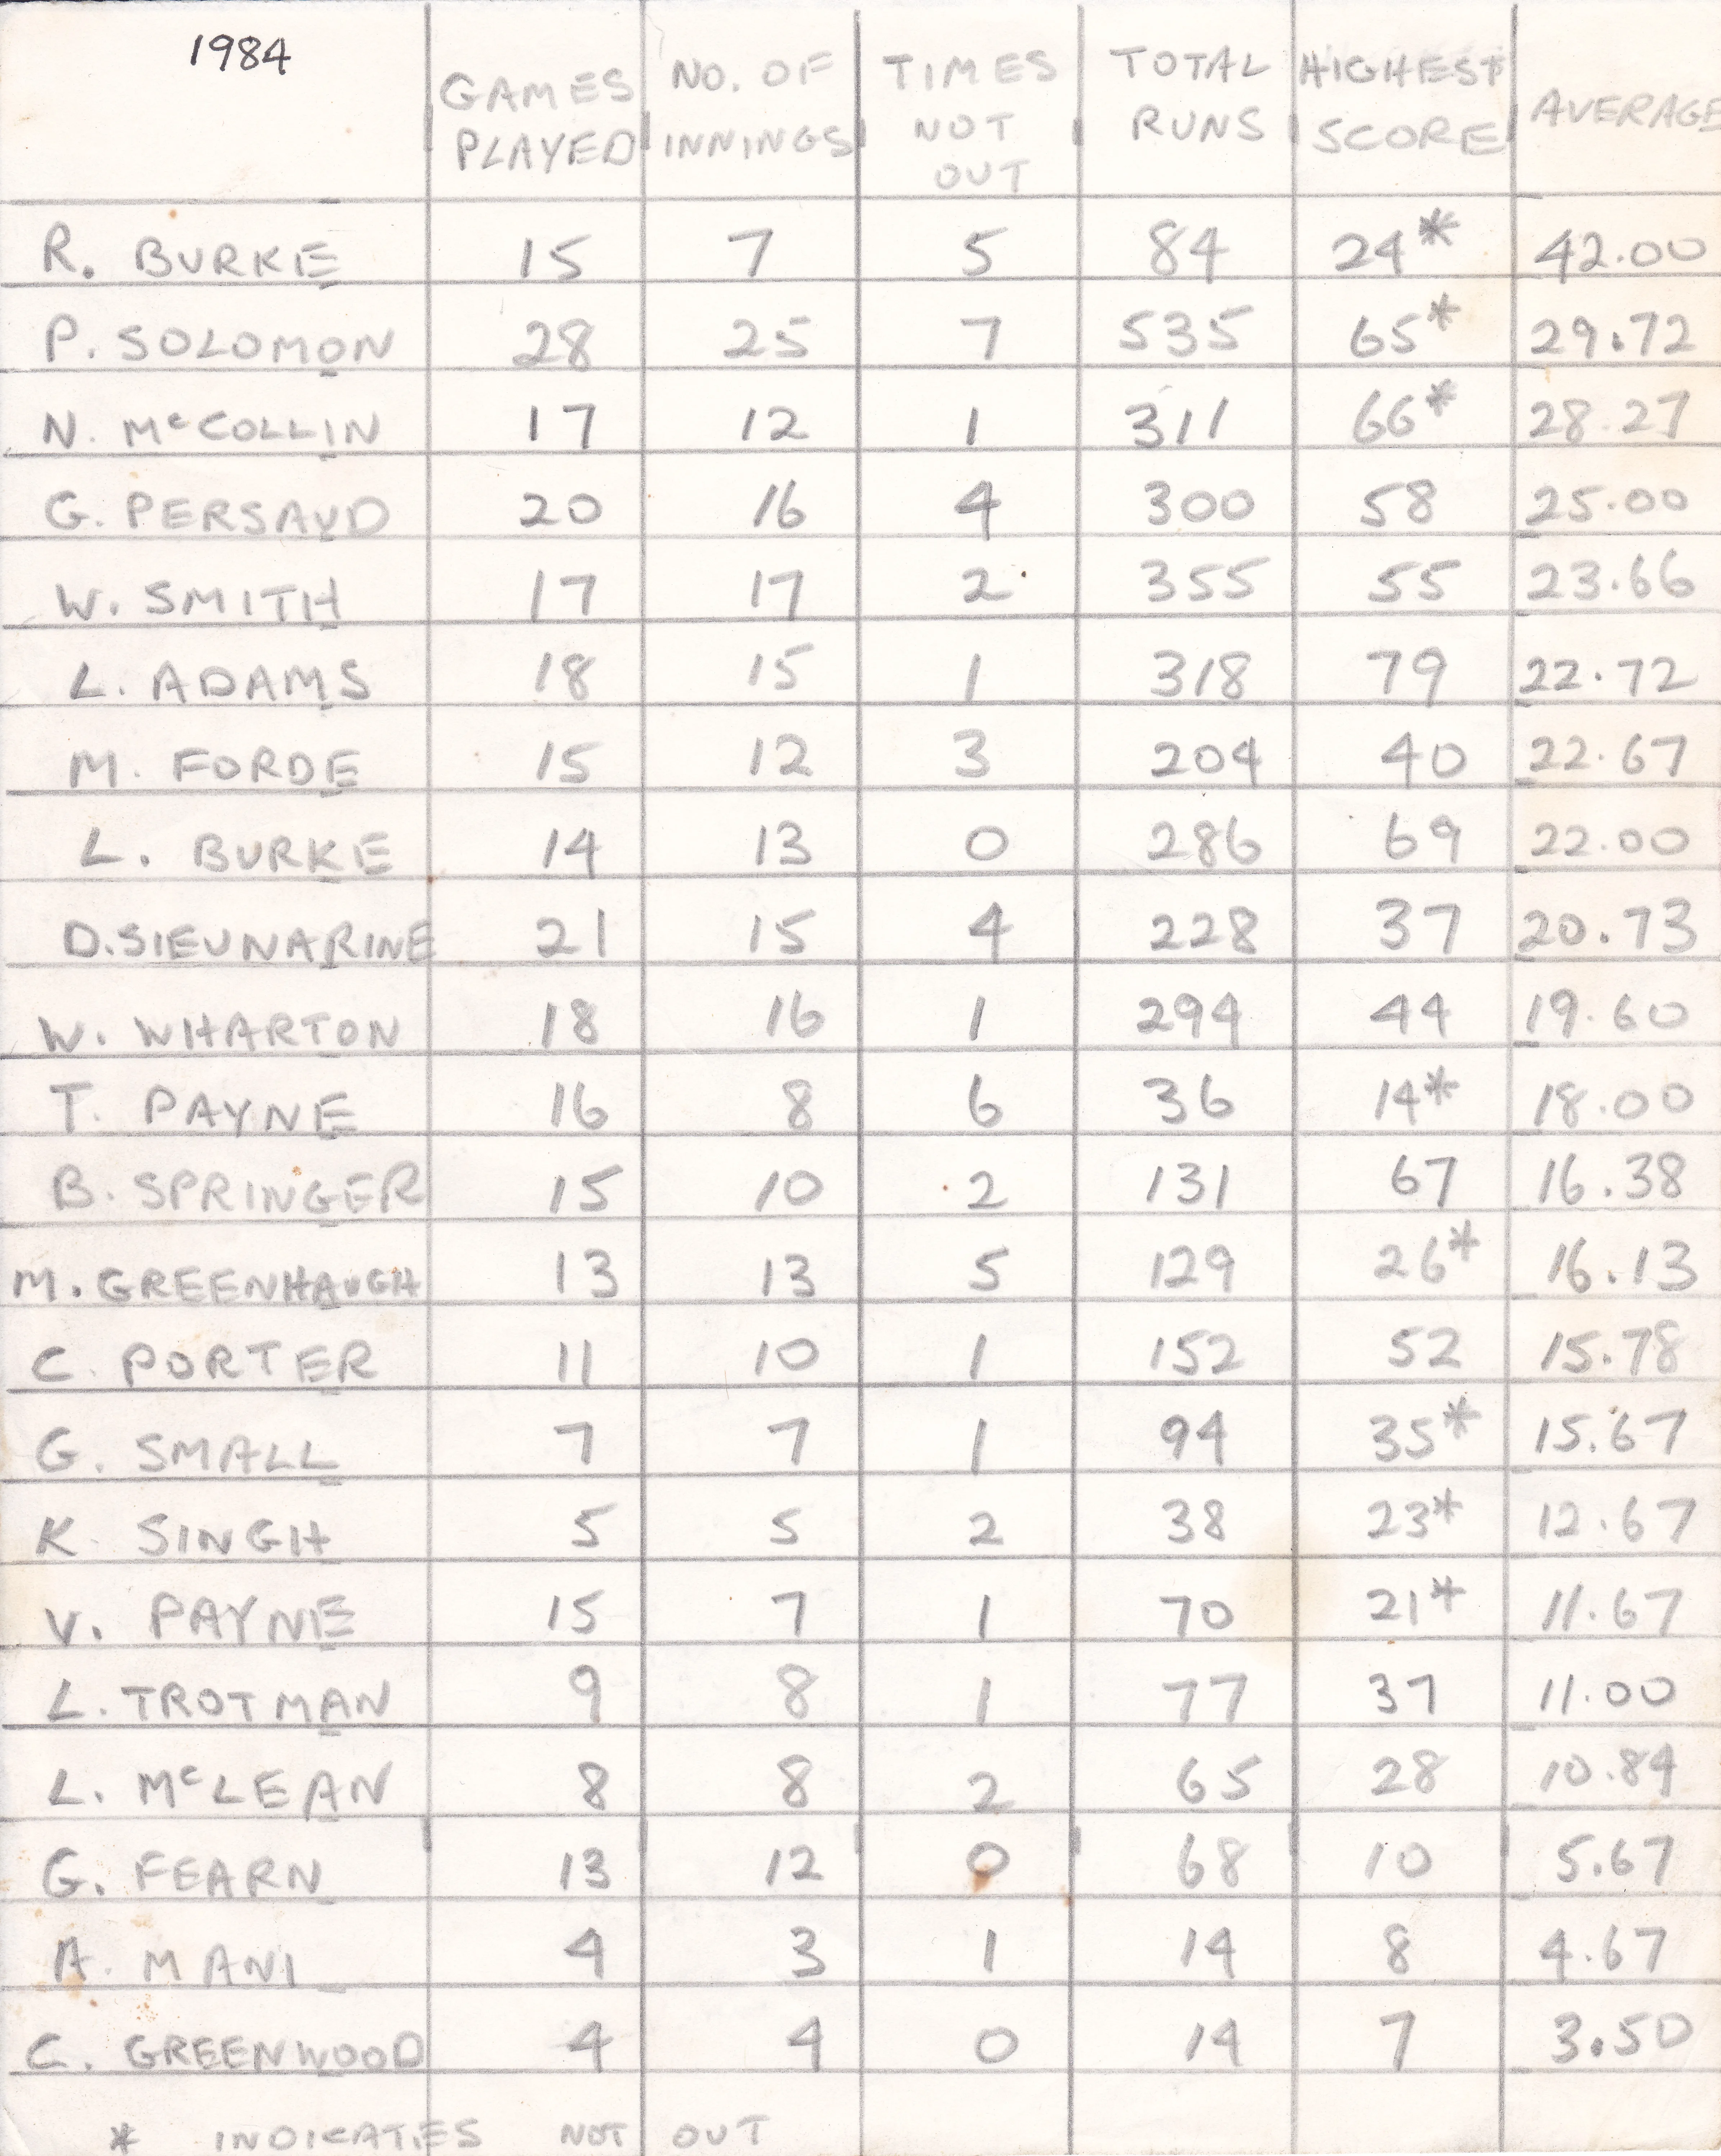 1984 GAMES PLAYED NO. OF INNINGS TIMES NOT OUT TOTAL RUNS HIGHEST SCORE AVERAGE
R. BURKE 15 7 5 84 24* 42.00
P. SOLOMON 28 25 7 535 65* 29.72
N. McCOLLIN 17 12 1 311 66* 28.27
G. PERSAUD 20 16 4 300 58 25.00
W. SMITH 17 17 2 355 55 23.66
L. ADAMS 18 15 1 318 79 22.72
M. FORDE 15 12 3 204 40 22.67
L. BURKE 14 13 0 286 69 22.00
D. SIEUNARINE 21 15 4 228 37 20.73
W. WHARTON 18 16 1 294 44 19.60
T. PAYNE 16 8 6 36 14* 18.00
B. SPRINGER 15 10 2 131 67 16.38
M. GREENHAUGH 13 13 5 129 26* 16.13
C. PORTER 11 10 1 152 52 15.78
G. SMALL 7 7 1 94 35* 15.67
K. SINGH 5 5 2 38 23* 12.67
V. PAYNE 15 7 1 70 21* 11.67
L. TROTMAN 9 8 1 77 37 11.00
L. McLEAN 8 8 2 65 28 10.84
G. FEARN 13 12 0 68 10 5.67
A. MANI 4 3 1 14 8 4.67
C. GREENWOOD 4 4 0 14 7 3.50
* INDICATES NOT OUT